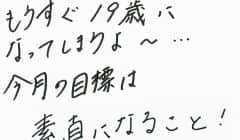 もうすぐ19歳に
なってしまうよ～…
今月の目標は
素直になること！